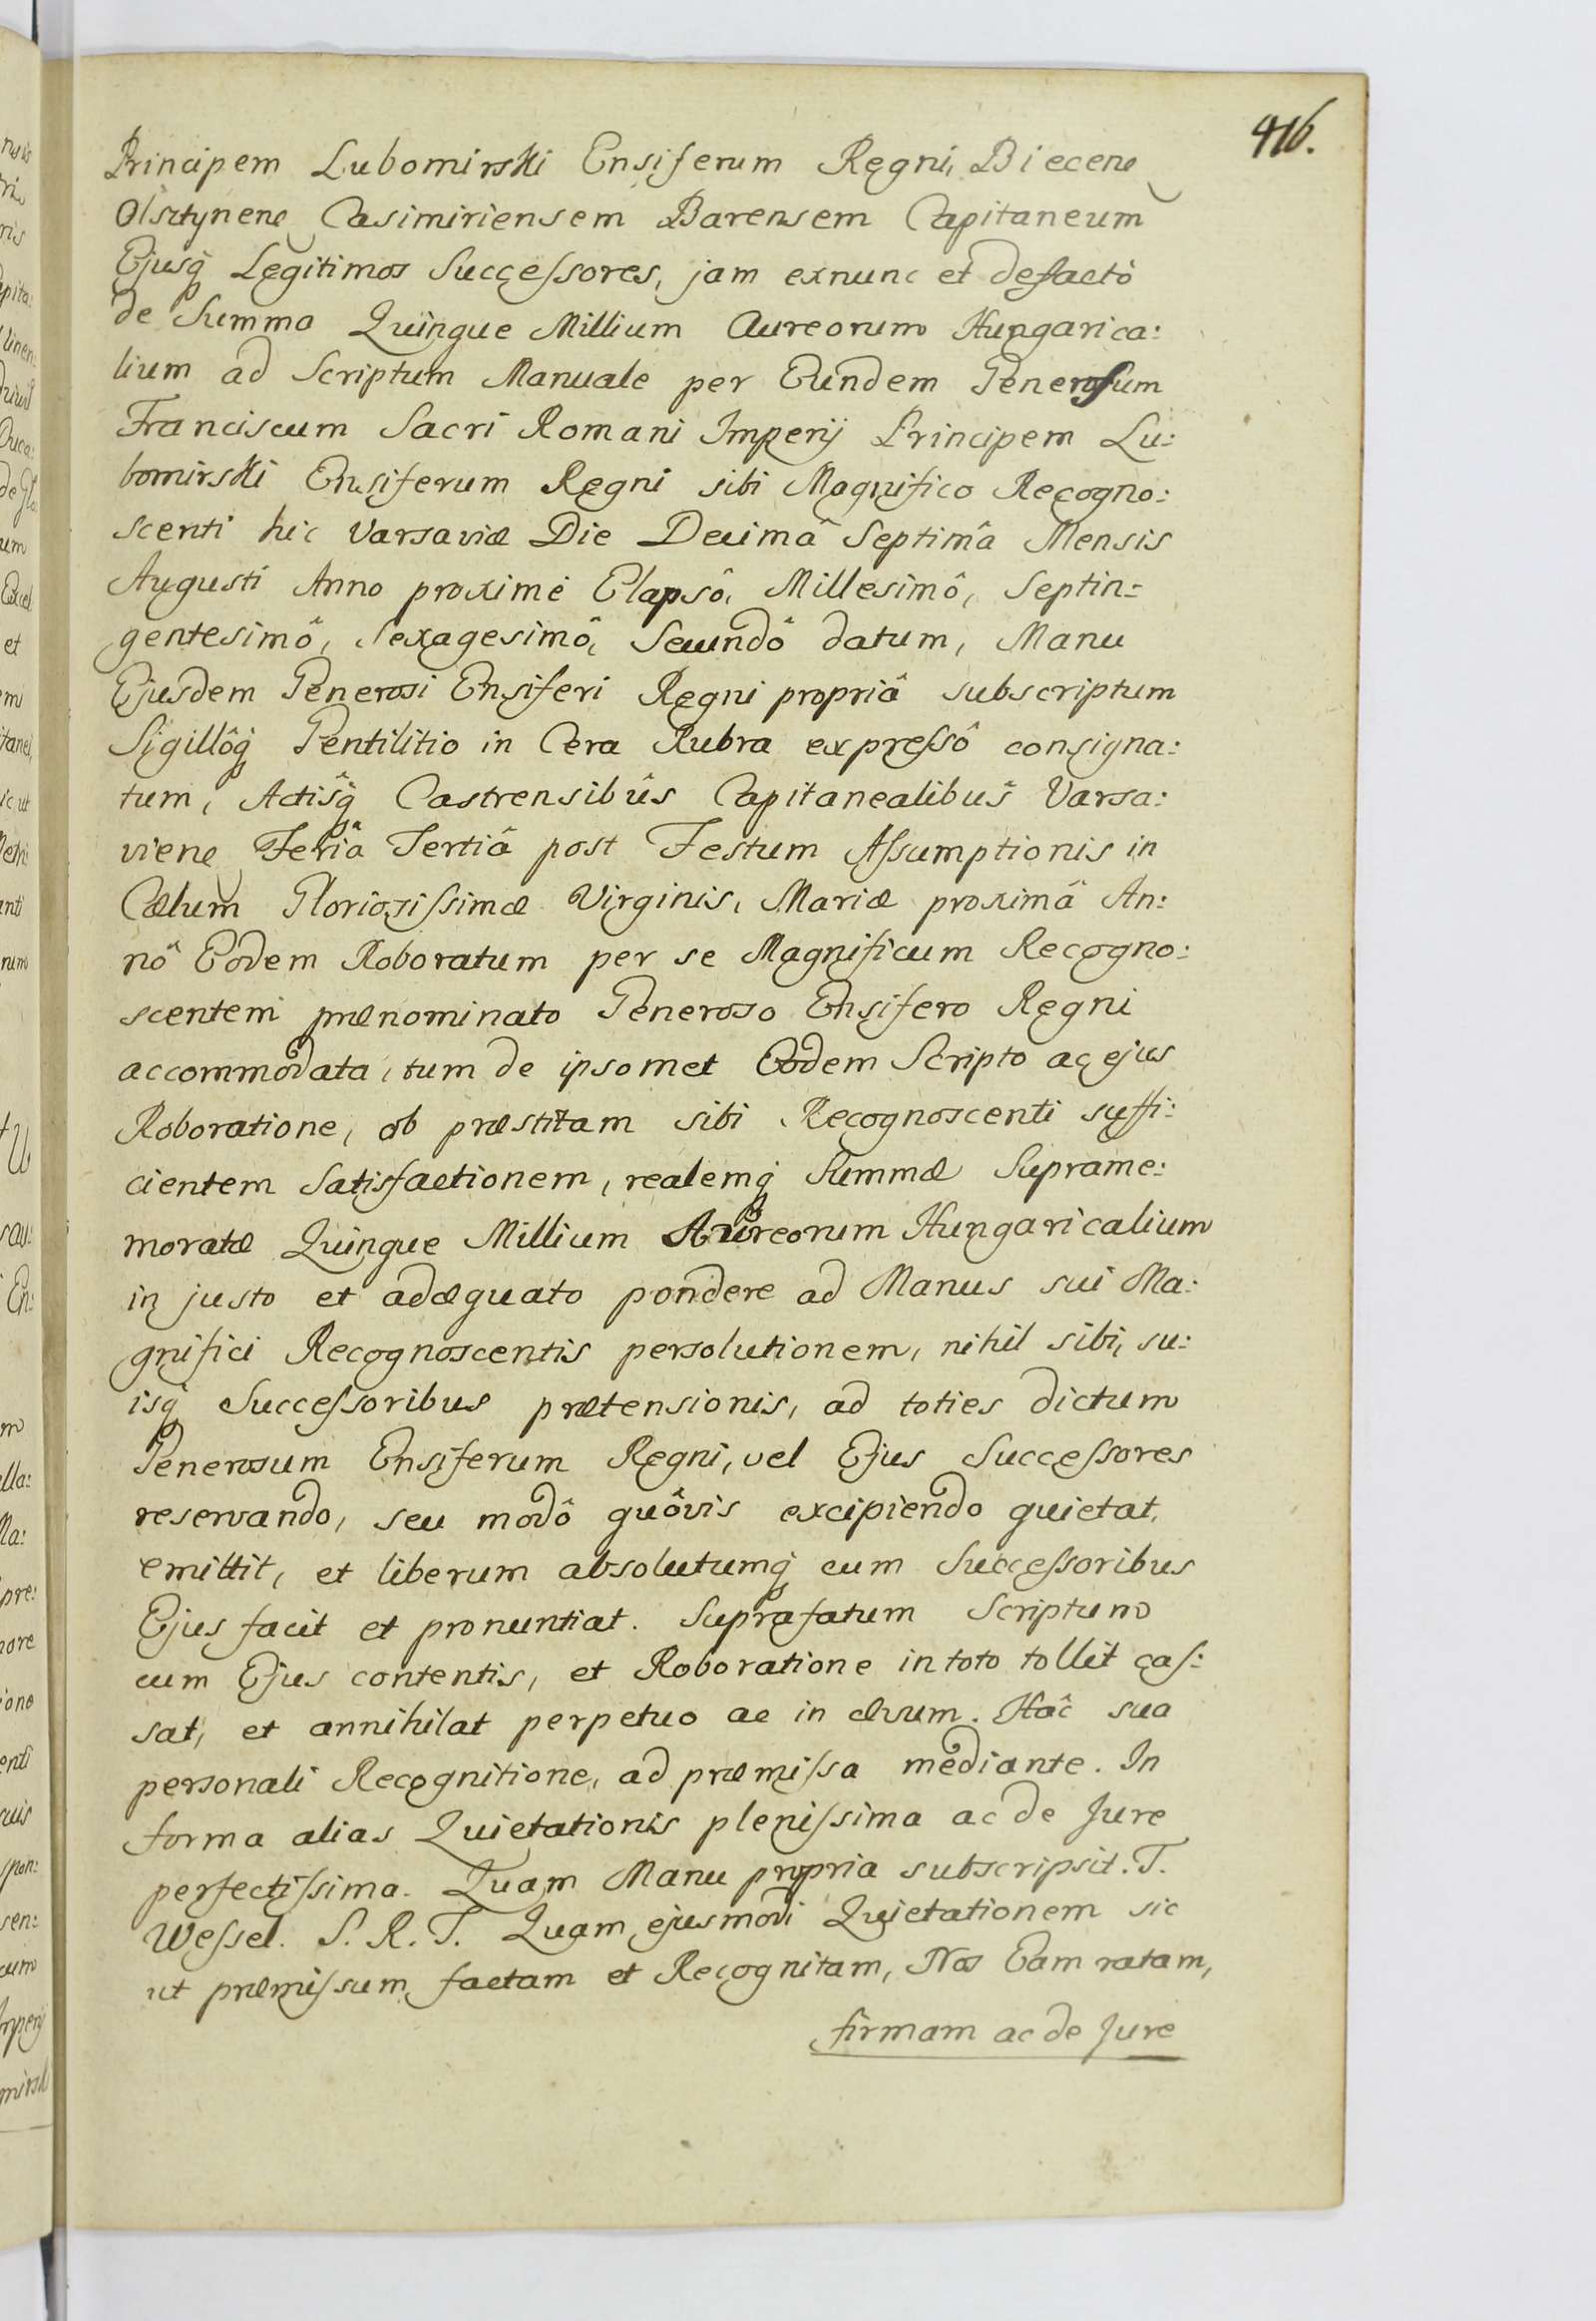 416.
Principem Lubomirski Ensiferum Regni, Biecene
Olsztynene Casimiriensem Barensem Capitaneum
Ejusq Legitimos Succeſsores, jam exnunc et defactò
de Summa Quinque Millium Aureorum Hungarica:
lium ad Scriptum Manuale per Eundem Generosum
Franciscum Sacri Romani Imperij Principem Lu:
bomirski Ensiferum Regni sibi Magnifico Recogno:
scenti hic Varsaviæ Die Decimâ Septimâ Mensis
Augusti Anno proximè Elapsô, Millesimô, Septin:
gentesimô, Sexagesimô, Secundô datum, Manu
Ejusdem Generosi Ensiferi Regni propriâ subscriptum
Sigillôq Gentilitio in Cera Rubra expreſsô consigna:
tum, Actisq Castrensibûs Capitanealibûs Varsa:
viene Feriâ Tertiâ post Festum Aſsumptionis in
Cælum Gloriosiſsimæ Virginis, Mariæ proximâ An:
nô Eodem Roboratum per se Magnificum Recogno:
scentem prænominato Generoso Ensifero Regni
accommodata, tum de ipsomet Eodem Scripto ac ejus
Roboratione, ob præstitam sibi Recognoscenti suffi:
cientem Satisfactionem, realemq Summæ Suprame:
moratæ Quinque Millium Aureorum Hungaricalium
in justo et adæquato pondere ad Manus sui Ma:
gnifici Recognoscentis persolutionem, nihil sibi, su:
isq Succeſsoribus prætensionis, ad toties dictum
Generosum Ensiferum Regni, vel Ejus Succeſsores
reservando, seu modô quôvis excipiendo quietat,
emittit, et liberum absolutumq eum Succeſsoribus
Ejus facit et pronuntiat. Suprafatum Scriptum
cum Ejus contentis, et Roboratione in toto tollit caſ:
sat, et annihilat perpetuo ac in ævum. Hâc sua
personali Recognitione, ad præmiſsa mediante. In
forma alias Quietationis pleniſsima ac de Jure
perfectiſsima. Quam Manu propria subscripsit. T.
Weſsel. S. R. T. Quam ejusmodi Quietationem sic
ut præmiſsum factam et Recognitam, Nos Eam ratam,
firmam ac de Jure